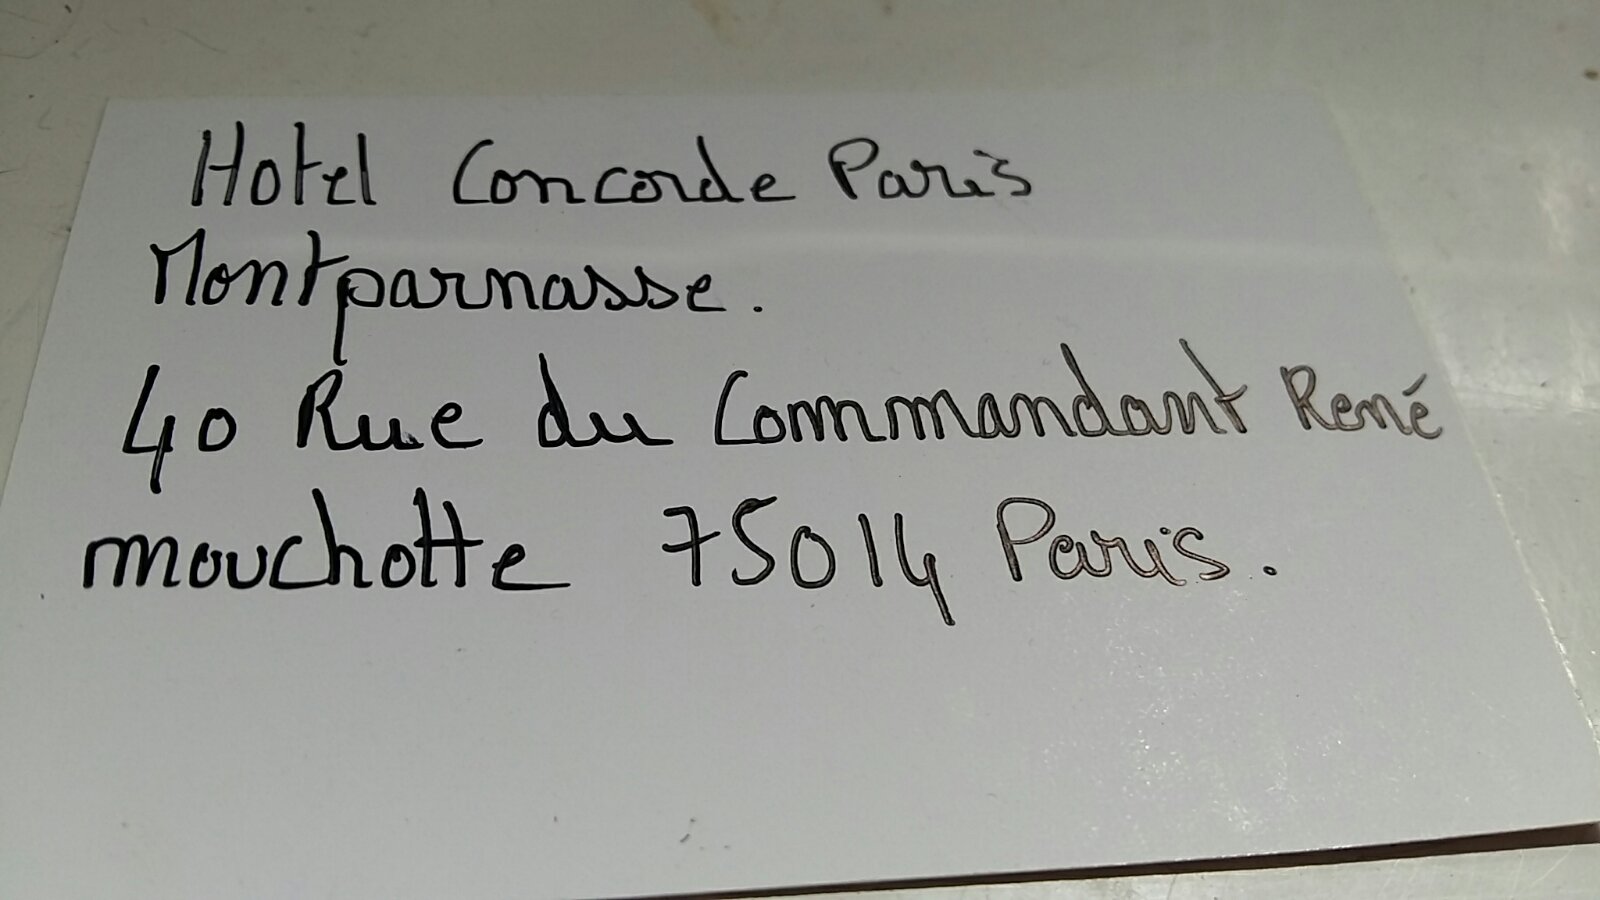 Hotel Concorde Paris
Montparnasse.
40 Rue du Commandant René
mouchotte 75014 Paris.